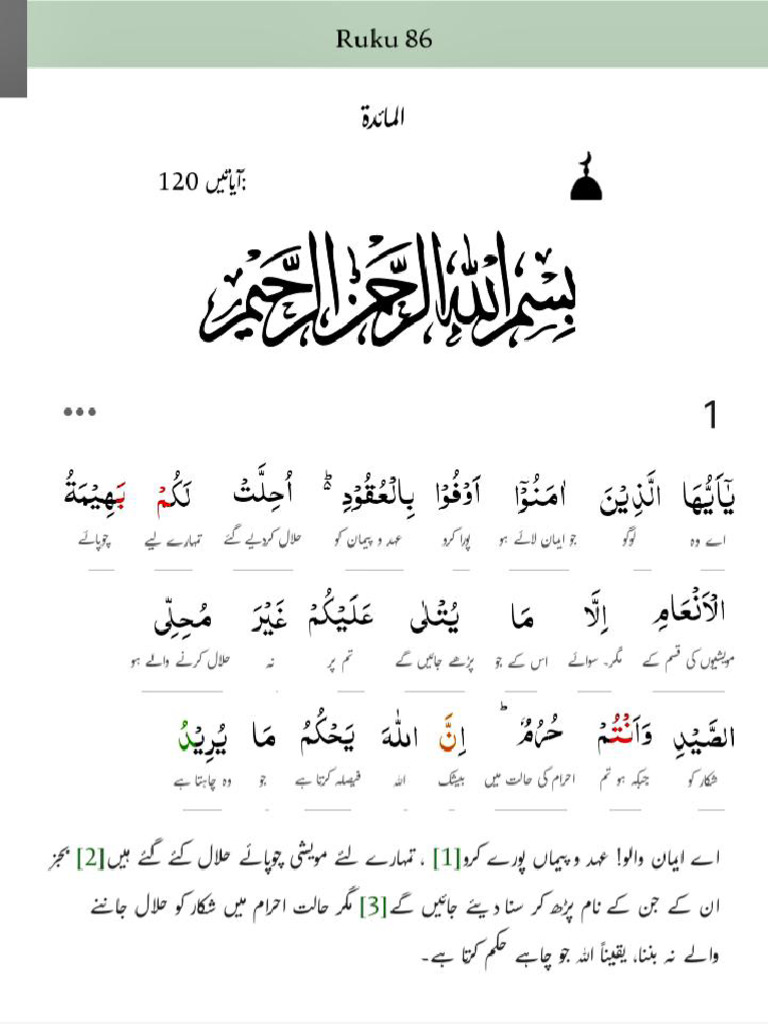 Ruku 86
المائدة
آیاتیں 120:
بِسْمِ اللّٰهِ الرَّحْمٰنِ الرَّحِيْمِ
1
يٰٓاَيُّهَا الَّذِيْنَ اٰمَنُوْٓا اَوْفُوْا بِالْعُقُوْدِ ؕ اُحِلَّتْ لَكُمْ بَهِيْمَةُ
اے وہ لوگو جو ایمان لائے ہو پورا کرو عہد و پیمان کو حلال کردیے گئے تمہارے لیے چوپائے
الْاَنْعَامِ اِلَّا مَا يُتْلٰى عَلَيْكُمْ غَيْرَ مُحِلِّى
مویشیوں کی قسم کے مگر۔ سوائے اس کے جو پڑھے جائیں گے تم پر نہ حلال کرنے والے ہو
الصَّيْدِ وَاَنْتُمْ حُرُمٌ ؕ اِنَّ اللّٰهَ يَحْكُمُ مَا يُرِيْدُ
شکار کو جبکہ ہو تم احرام کی حالت میں بیشک اللہ فیصلہ کرتا ہے جو وہ چاہتا ہے
اے ایمان والو! عہد و پیماں پورے کرو[1] ، تمہارے لئے مویشی چوپائے حلال کئے گئے ہیں[2] بجز
ان کے جن کے نام پڑھ کر سنا دیئے جائیں گے[3] مگر حالت احرام میں شکار کو حلال جاننے
والے نہ بننا، یقیناً اللہ جو چاہے حکم کرتا ہے۔